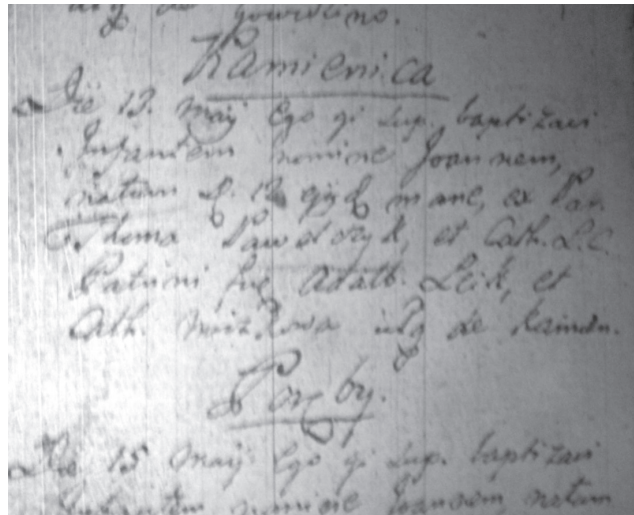 de
Kamienica
Die 13. Maij Ego qi sup. baptizavi
Infantem nomine Joannem,
natum d. 12 ejusd mane, ex Par.
Thoma et Cath. L.C.
Patrini fue Adalb. Leik, et
Cath. utq de Kamien.
Poreby.
Die 15 Maij Ego qi sup. baptizavi
Infantem nomine Joannem, natum